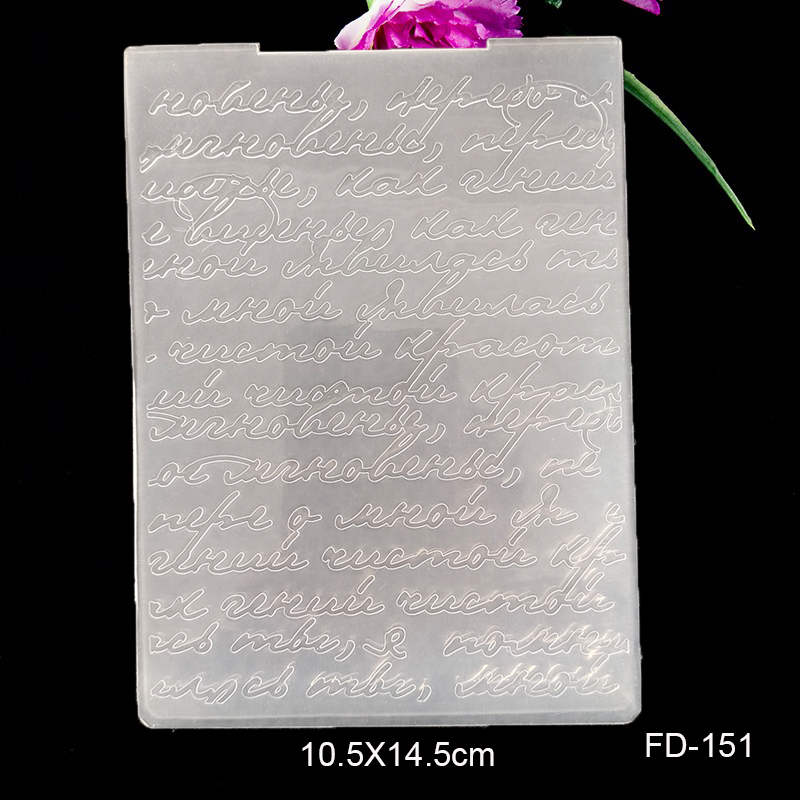 новенье, передо
мгновенье, перед
как гений
виденье, как ген
мной явилась ты
о мной явилась
чистой красот
ий чистой крас
мгновенье, передо
мгновенье, пе
пере о мной
гений чистой кр
гений чистой
ась ты, я помню
лась ты, мной
10.5X14.5cm
FD-151